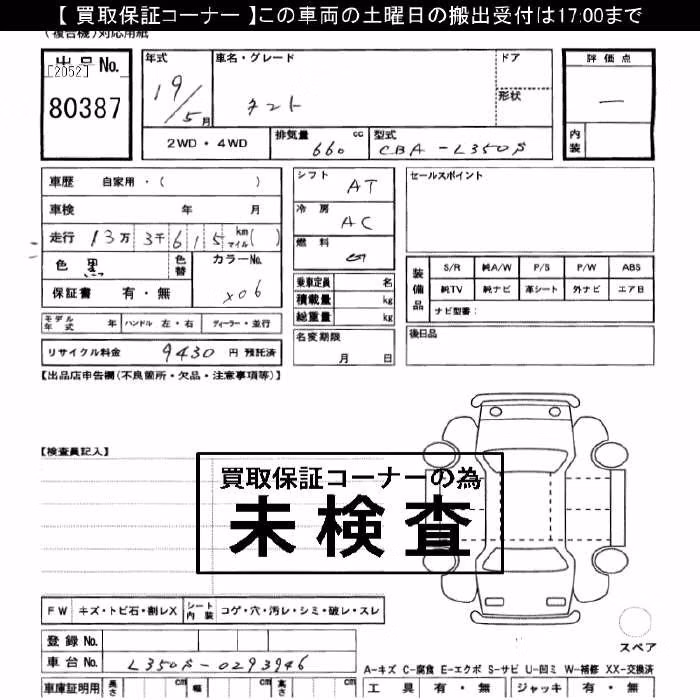 【 買取保証コーナー 】この車両の土曜日の搬出受付は17:00まで
(複合機)対応用紙
出品No.
[2052]
80387
年式
19/5月
車名・グレード
タント
ドア
形状
評価点
—
内装
2WD・4WD
排気量 660 cc
型式 CBA-L350S
車歴 自家用・( )
車検 年 月
走行 13万 3千 6 1 5 km マイル( )
色 黒
色替
カラーNo.
X06
保証書 有・無
シフト AT
冷房 AC
燃料
乗車定員 名
積載量 kg
総重量 kg
セールスポイント
装備品
S/R 純A/W P/S P/W ABS
純TV 純ナビ 革シート 外ナビ エア日
ナビ型番:
モデル年式 年 ハンドル 左・右 ディーラー・並行
名変期限
月 日
後日品
リサイクル料金 9430 円 預託済
【出品店申告欄(不良箇所・欠品・注意事項等)】
【検査員記入】
買取保証コーナーの為
未検査
FW キズ・トビ石・割レX シート内装 コゲ・穴・汚レ・シミ・破レ・スレ
登録No.
車台No. L350S-0293946
スペア
A-キズ C-腐食 E-エクボ S-サビ U-凹ミ W-補修 XX-交換済
車庫証明用 長さ cm 幅 cm 高さ cm
工具 有・無 ジャッキ 有・無